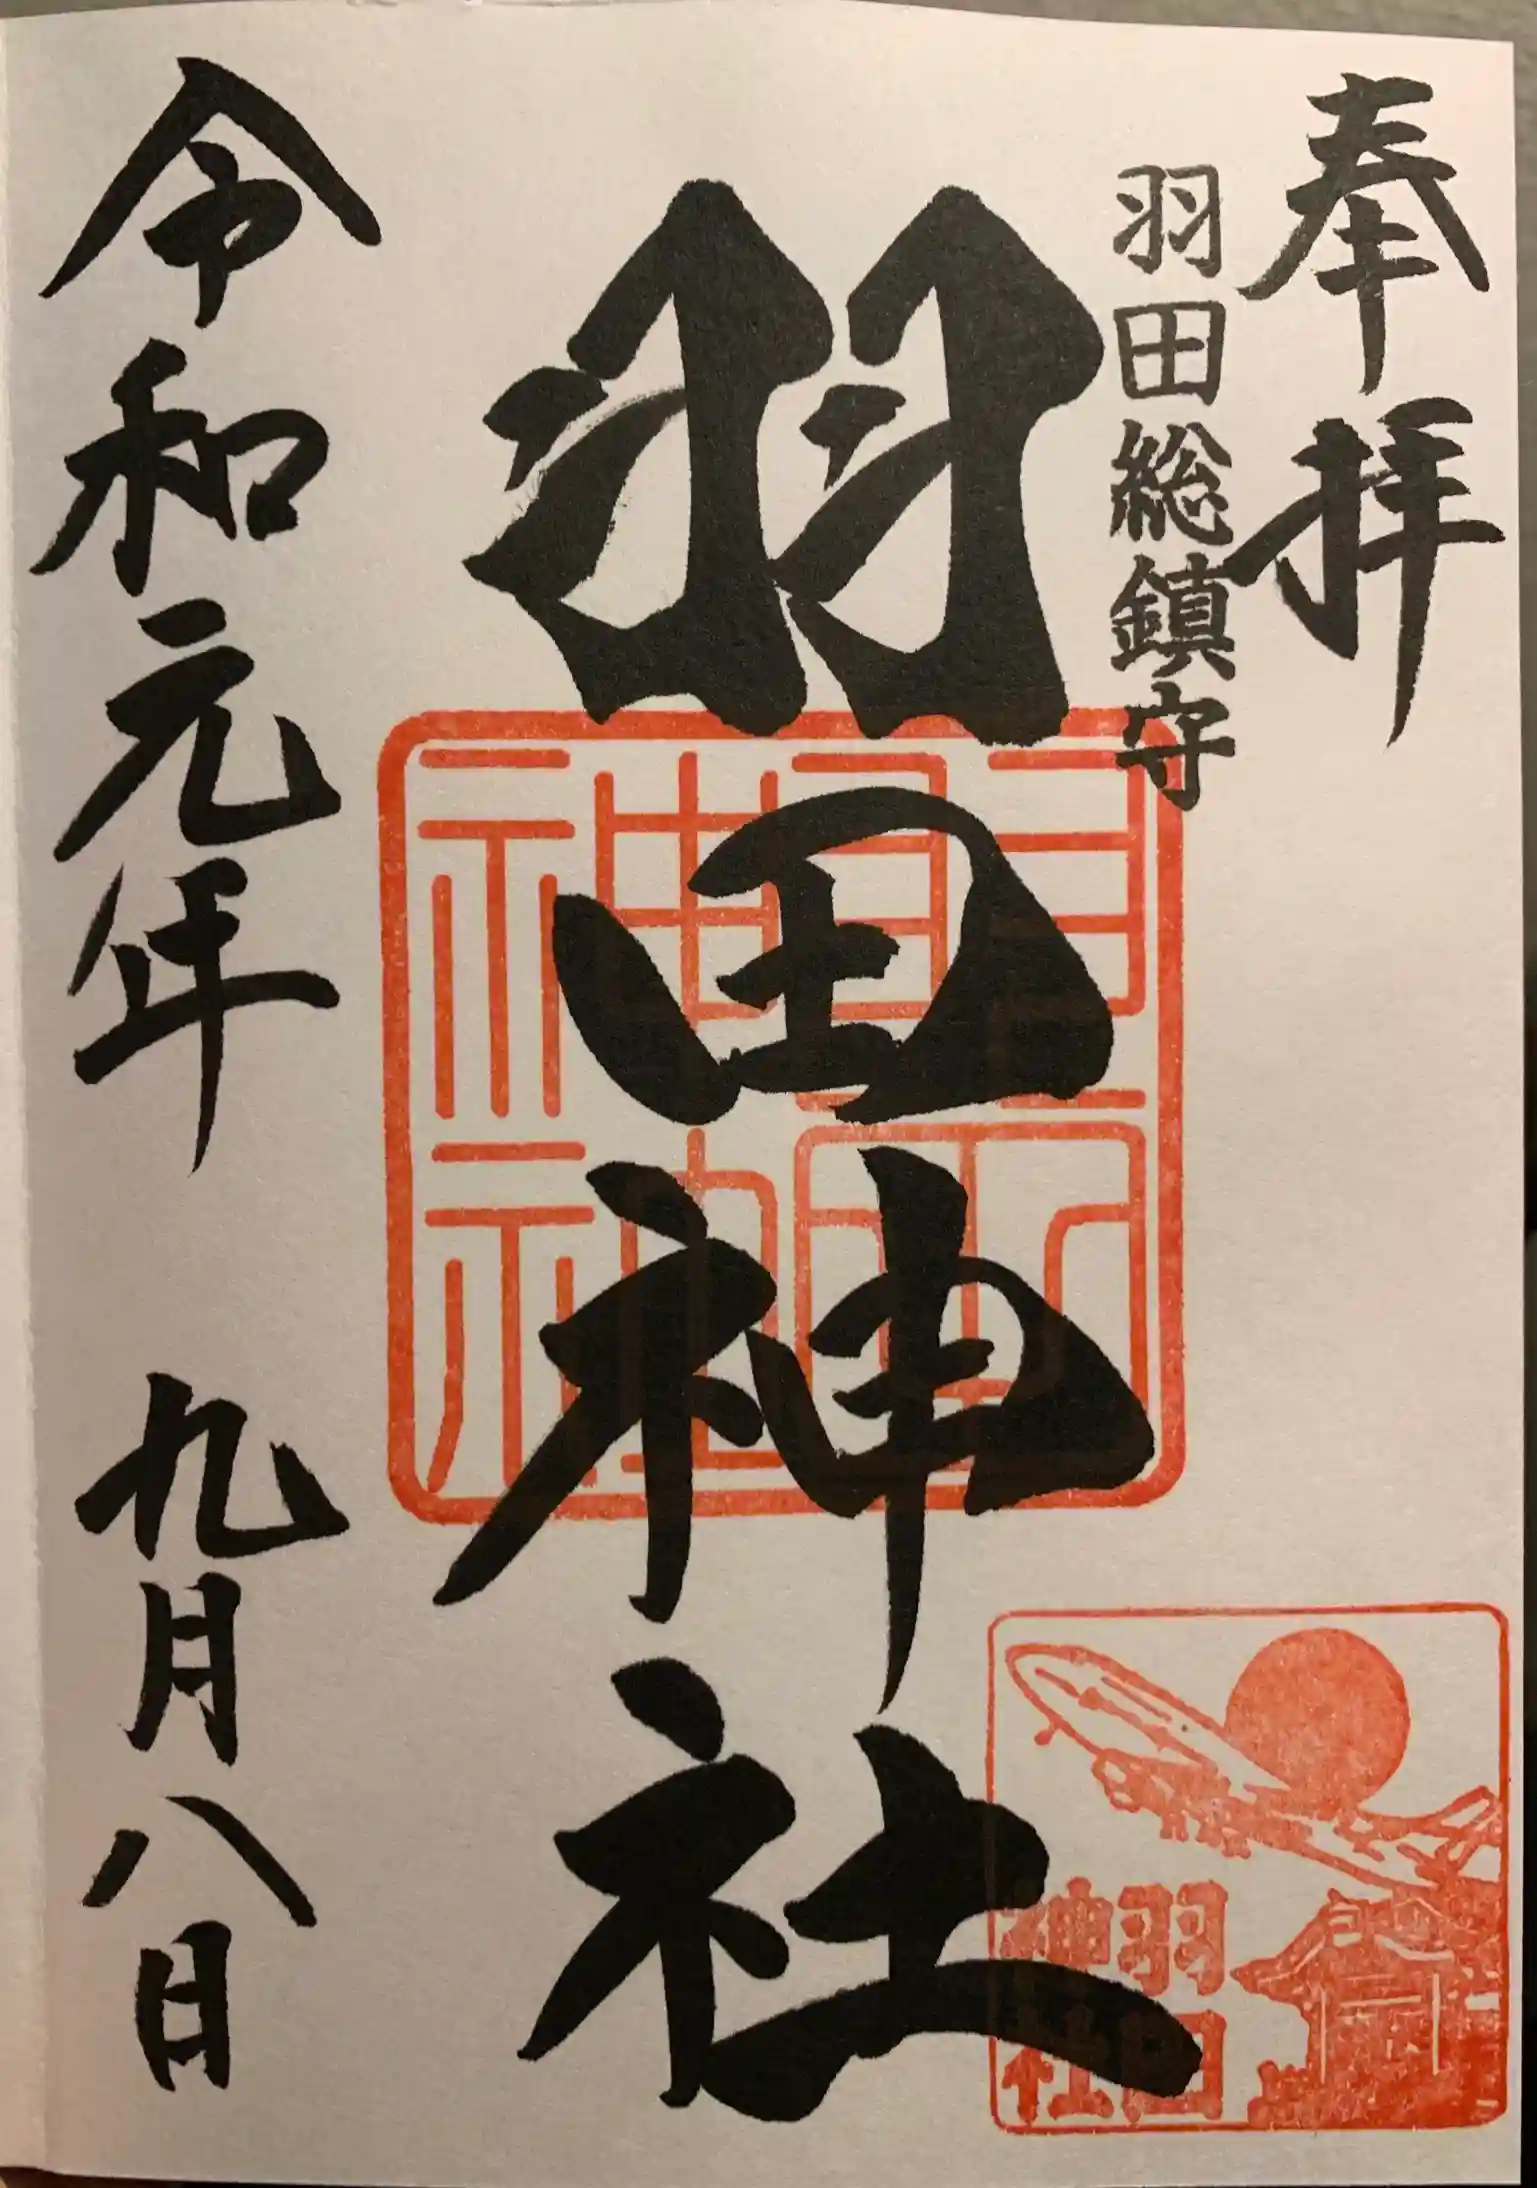 奉拝
羽田総鎮守
羽田神社
令和元年 九月八日
羽田
神社
羽田
神社